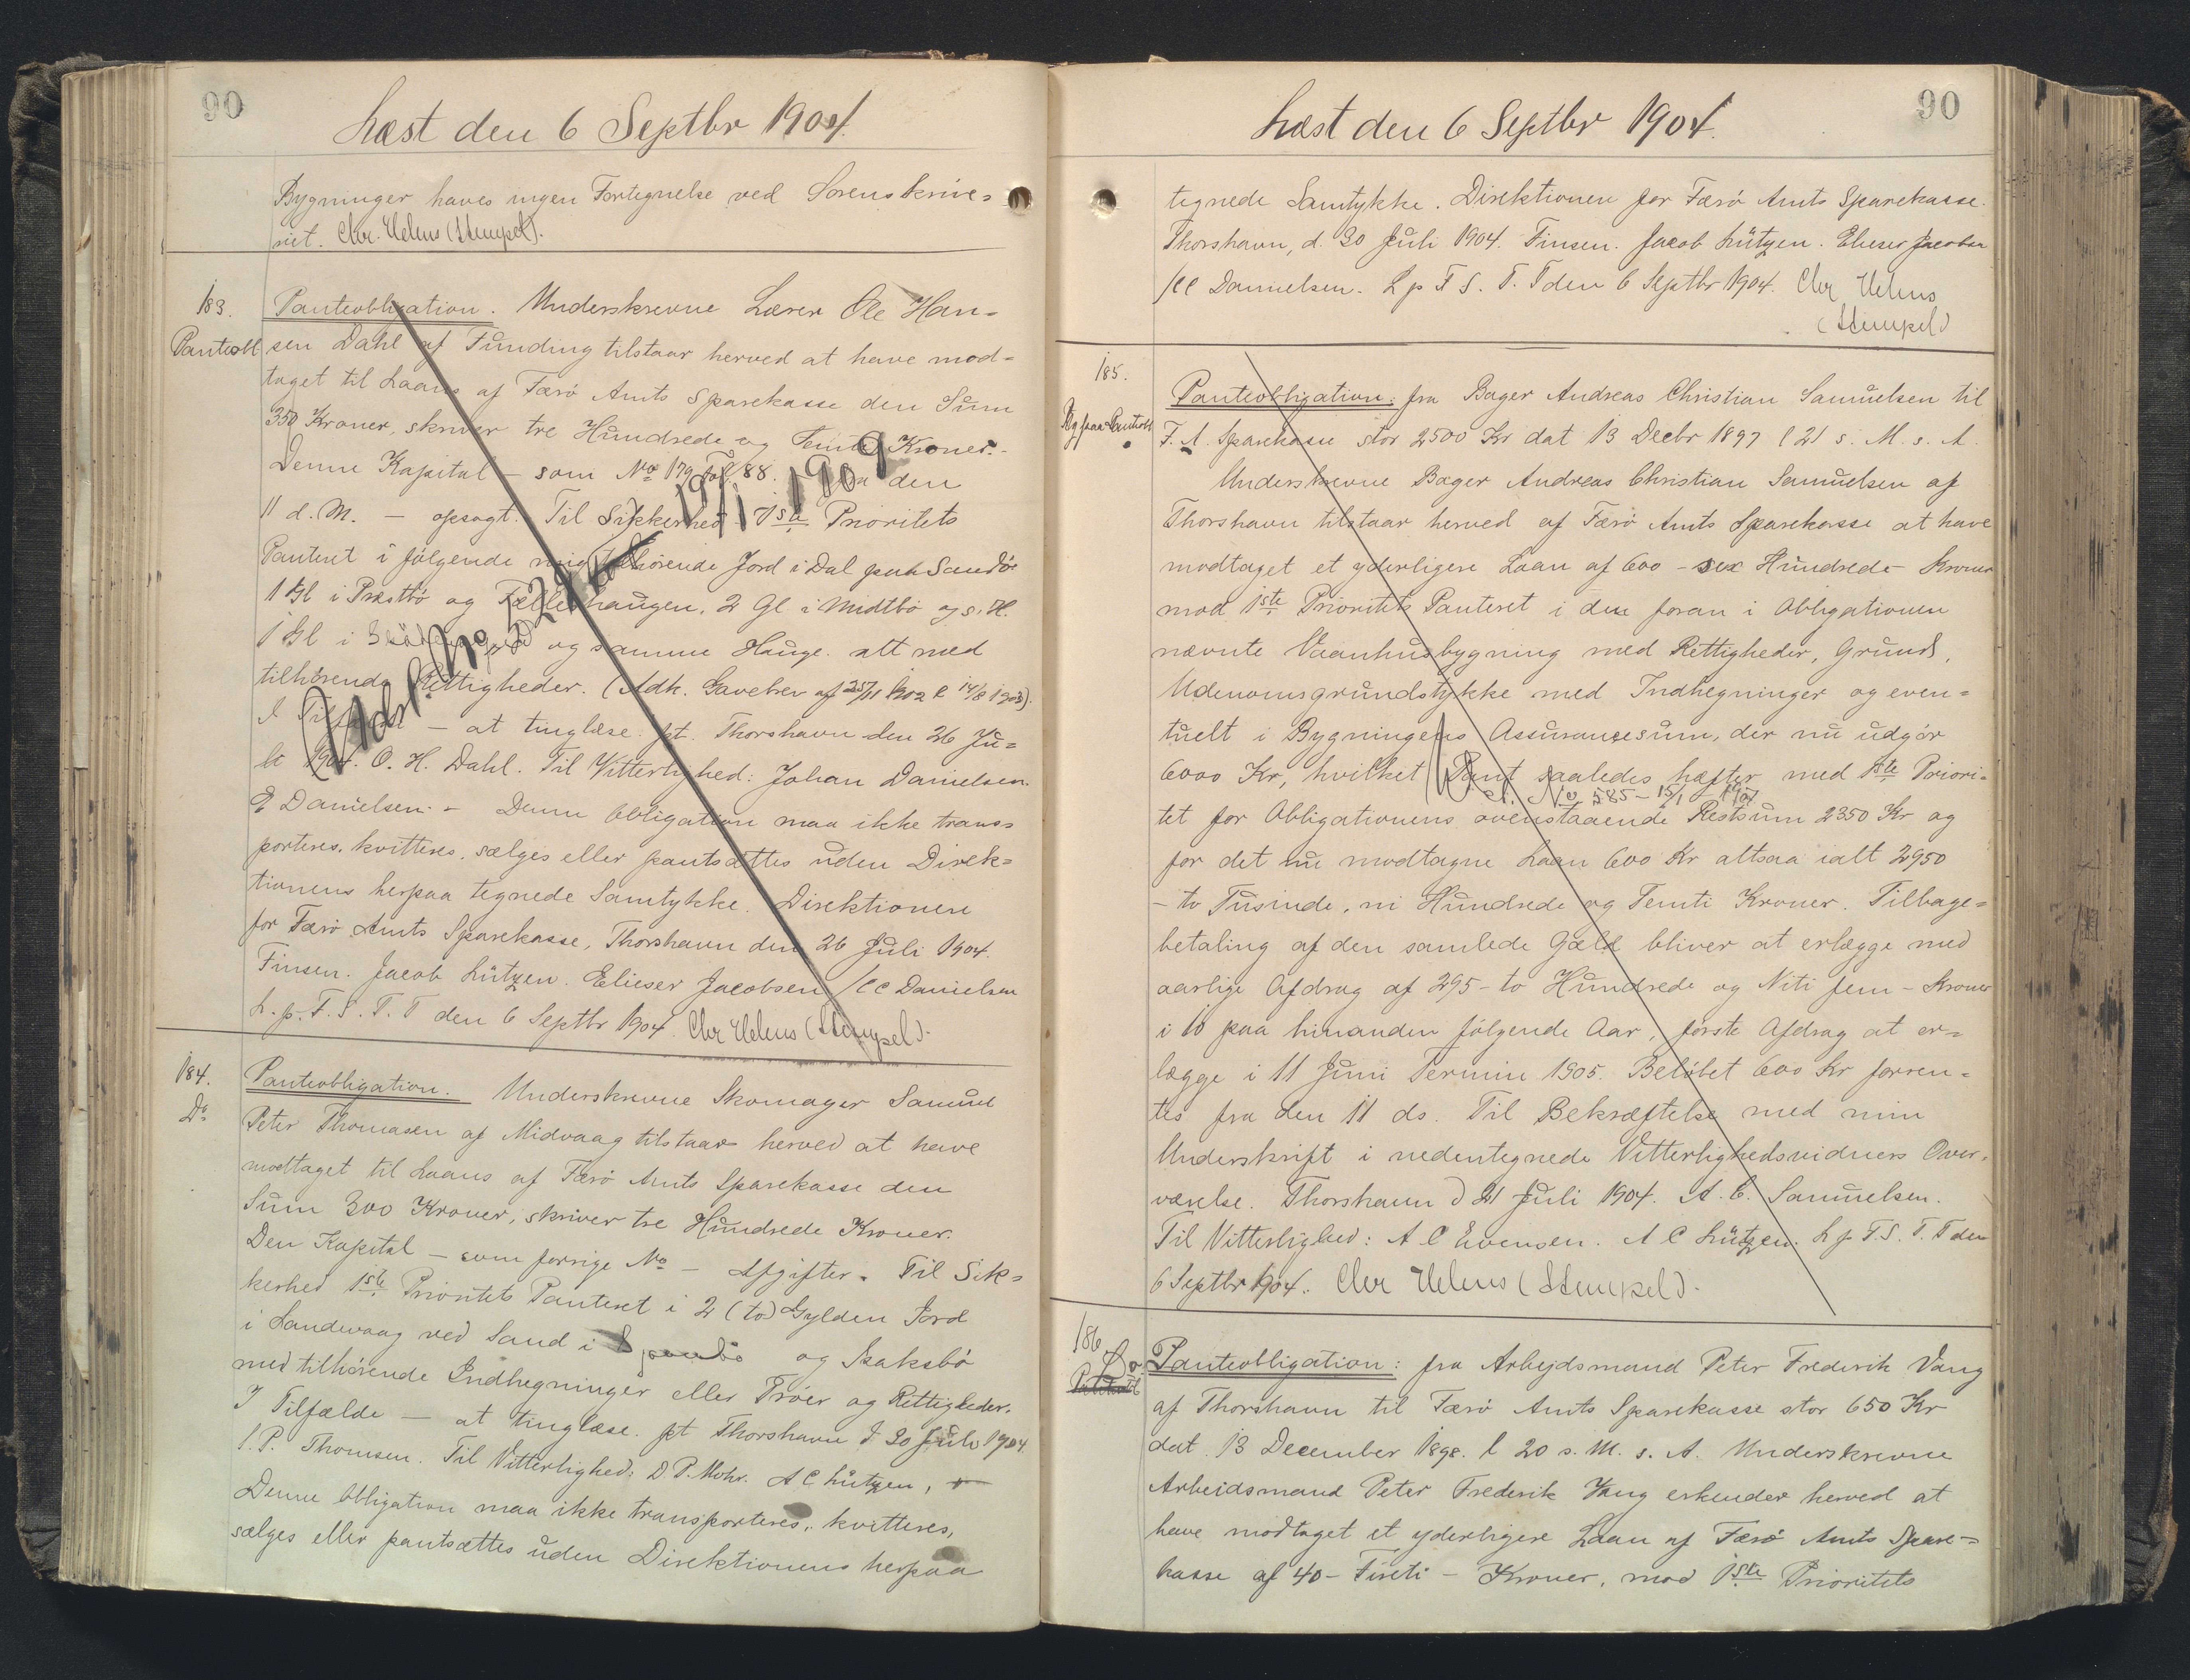 90
Læst den 6 Septbr 1904.
Bygninger haves ingen Fortegnelse ved Sorenskrive=
riet. Chr. Helms (Stempel).
183.
Panteobl
Panteobligation. Underskrevne Lærer Ole Han-
sen Dahl af Funding tilstaar herved at have mod=
taget til Laans af Færø Amts Sparekasse den Sum
350 Kroner, skriver tre Hundrede og Femti Kroner.-
Denne Kapital - som No 179 Fol. 88. fra den
11 d. M. - opsagt. Til Sikkerhed 1ste Prioritets
Panteret i følgende mig tilhørende Jord i Dal paa Sandø:
1 Gl i Præstbø og Fælleshaugen, 2 Gl i Midtbø og s. H.
1 Gl i og samme Hauge. alt med
tilhørende Rettigheder. (Adk. Gavebrev af 25/11 1902 l 14/8 1903).
I Tilfælde - at tinglæse. pt. Thorshavn den 26 Ju=
li 1904. O. H. Dahl. Til Vitterlighed: Johan Danielsen.
E Danielsen. - Denne Obligation maa ikke trans=
porteres, kvitteres, sælges eller pantsættes uden Direk=
tionens herpaa tegnede Samtykke. Direktionen
for Færø Amts Sparekasse, Thorshavn den 26 Juli 1904.
Finsen. Jacob Lützen. Elieser Jacobsen /CC Danielsen
L. p. F. S. T. T den 6 Septbr 1904. Chr Helms (Stempel).
Udsl. No 529 19/11 1909
184.
Do
Panteobligation. Underskrevne Skomager Samuel
Peter Thomasen af Midvaag tilstaar herved at have
modtaget til Laans af Færø Amts Sparekasse den
Sum 300 Kroner, skriver tre Hundrede Kroner.
Den Kapital - som forrige No - Afgifter. Til Sik=
kerhed 1ste Prioritets Panteret i 2 (to) Gylden Jord
i Sandevaag ved Sand i og Isaksbø
med tilhørende Indhegninger eller Trøer og Rettigheder.
I Tilfælde - at tinglæse. pt Thorshavn d 30 Juli 1904.
S. P. Thomsen. Til Vitterlighed: D. P. Mohr. A C Lützen,
Denne Obligation maa ikke transporteres, kvitteres,
sælges eller pantsættes uden Direktionens herpaa
90
Læst den 6 Septbr 1904.
tegnede Samtykke. Direktionen for Færø Amts Sparekasse.
Thorshavn, d. 30 Juli 1904. Finsen. Jacob Lützen. Elieser Jacobsen
/CC Danielsen. L p F S. T. T den 6 Septbr 1904. Chr Helms
(Stempel)
185.
Panteobligation: fra Bager Andreas Christian Samuelsen til
F. A. Sparekasse stor 2500 Kr dat 13 Decbr 1897 l 21 s. M. s. A.
Underskrevne Bager Andreas Christian Samuelsen af
Thorshavn tilstaar herved af Færø Amts Sparekasse at have
modtaget et yderligere Laan af 600 - sex Hundrede - Kroner
mod 1ste Prioritets Panteret i den foran i Obligationen
nævnte Vaanhusbygning med Rettigheder, Grund,
Udenomsgrundstykke med Indhegninger og even=
tuelt i Bygningens Assurancesum, der nu udgør
6000 Kr, hvilket Pant saaledes hæfter med 1ste Priori-
No 585 - 15/1 1907
tet for Obligationens ovenstaaende Restsum 2350 Kr og
for det nu modtagne Laan 600 Kr altsaa ialt 2950
- to Tusinde, ni Hundrede og Femti Kroner. Tilbage=
betaling af den samlede Gæld bliver at erlægge med
aarlige Afdrag af 295 - to Hundrede og Niti fem - Kroner
i 10 paa hinanden følgende Aar, første Afdrag at er=
lægge i 11 Juni Termin 1905. Beløbet 600 Kr forren=
tes fra den 11 ds. Til Bekræftelse med min
Underskrift i nedentegnede Vitterlighedsvidners Over-
værelse. Thorshavn d 21 Juli 1904. A. C. Samuelsen.
Til Vitterlighed: A C Evensen. A C Lützen. L p F. S. T. T den
6 Septbr 1904. Chr Helms (Stempel).
186
Do
Panteobligation: fra Arbejdsmand Peter Frederik Vang
af Thorshavn til Færø Amts Sparekasse stor 650 Kr
dat. 13 December 1898. l 20 s. M. s. A. Underskrevne
Arbeidsmand Peter Frederik Vang erkender herved at
have modtaget et yderligere Laan af Færø Amts Spare=
kasse af 40 - Fireti - Kroner, mod 1ste Prioritets